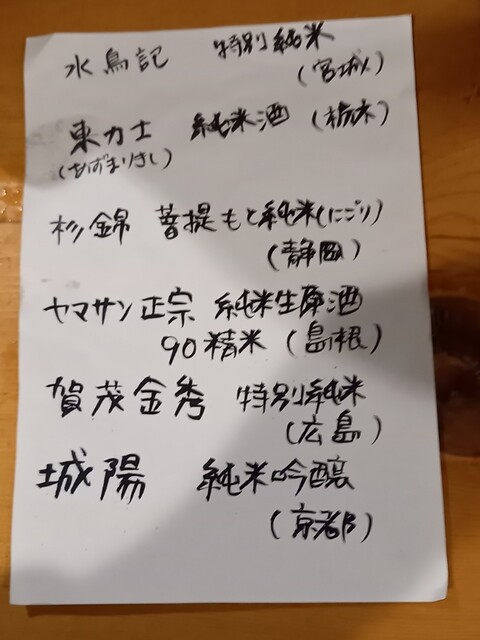 水鳥記 特別純米
(宮城)
東力士 純米酒 (栃木)
(あずまりきし)
杉錦 菩提もと純米(にごり)
(静岡)
ヤマサン正宗 純米生原酒
90精米 (島根)
賀茂金秀 特別純米
(広島)
城陽 純米吟醸
(京都)